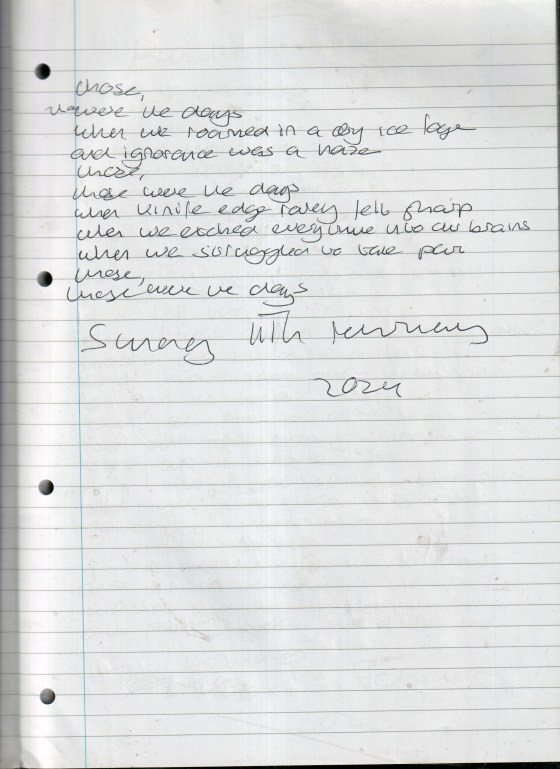 those,
those were the days
when we roamed in a dry ice
and ignorance was a haze
those,
those were the days
when knife edge felt sharp
when we etched everytime into our brains
when we sstruggled to take part
those,
those were the days
Sunday 11th February
2024